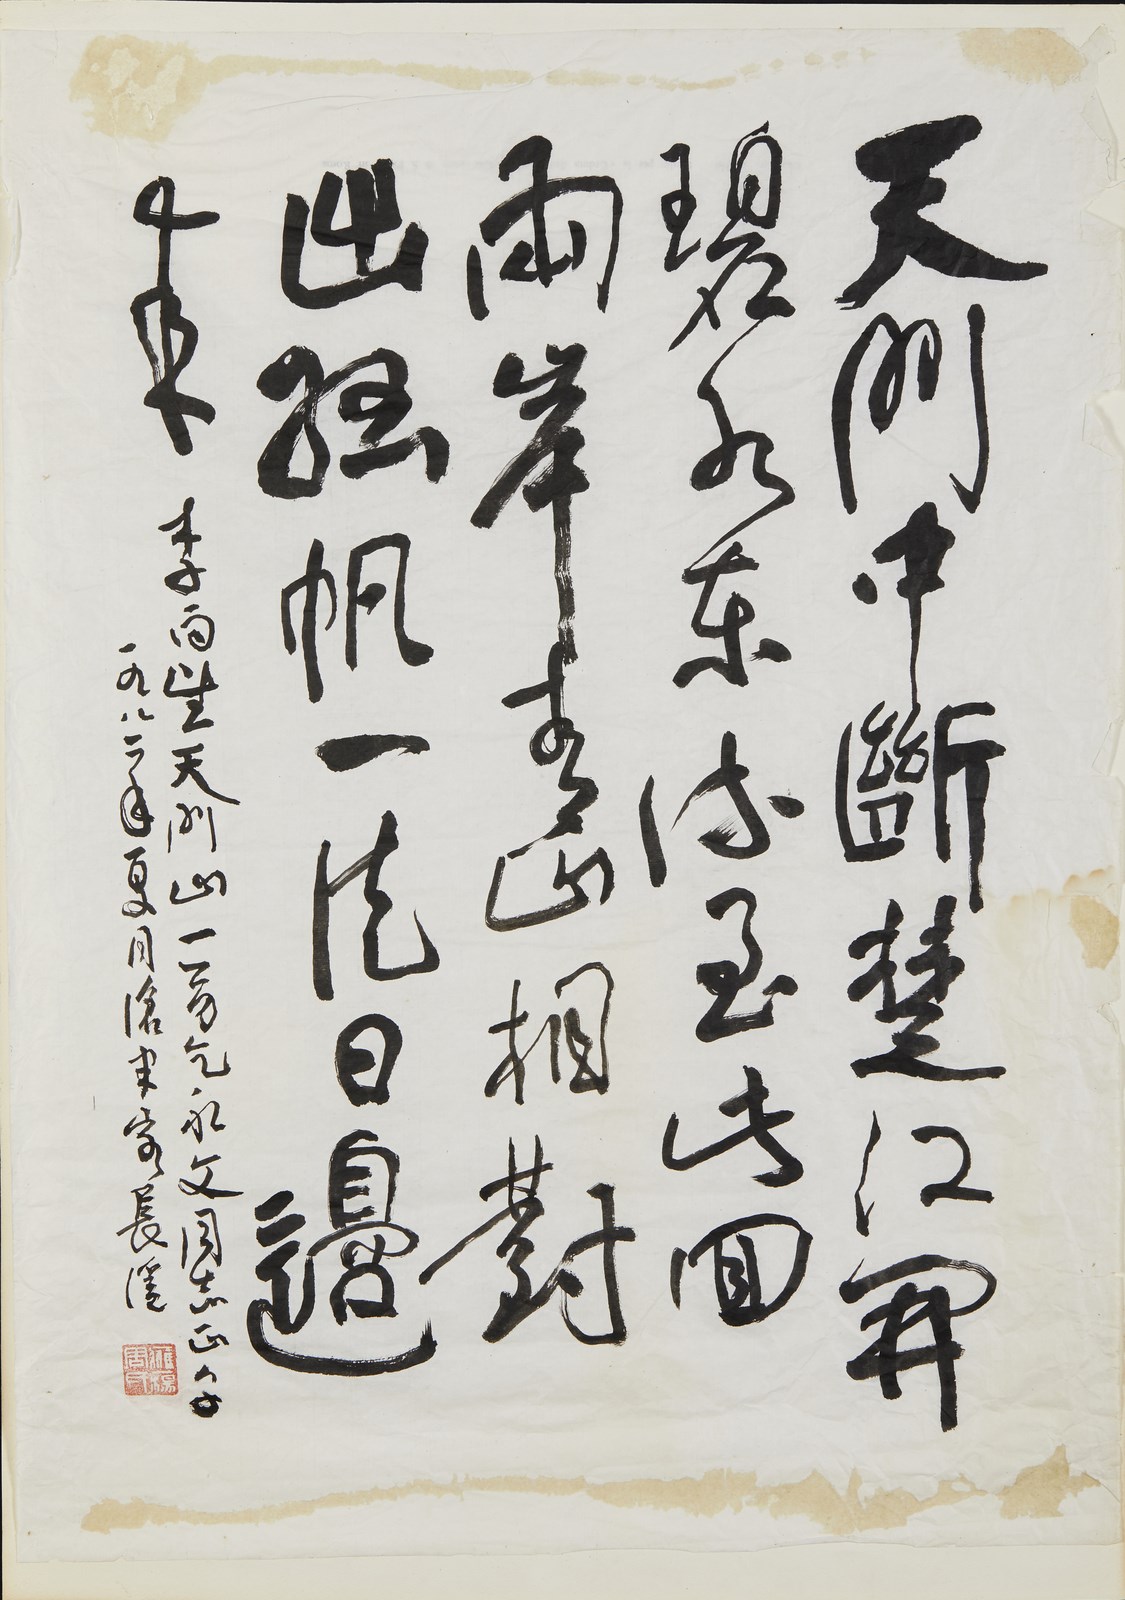 天門中斷楚江開
碧水東流至此回
兩岸青山相對
出孤帆一片日邊
來
李白望天門山一首
永文同志正字
一九八二年夏月滄
客長